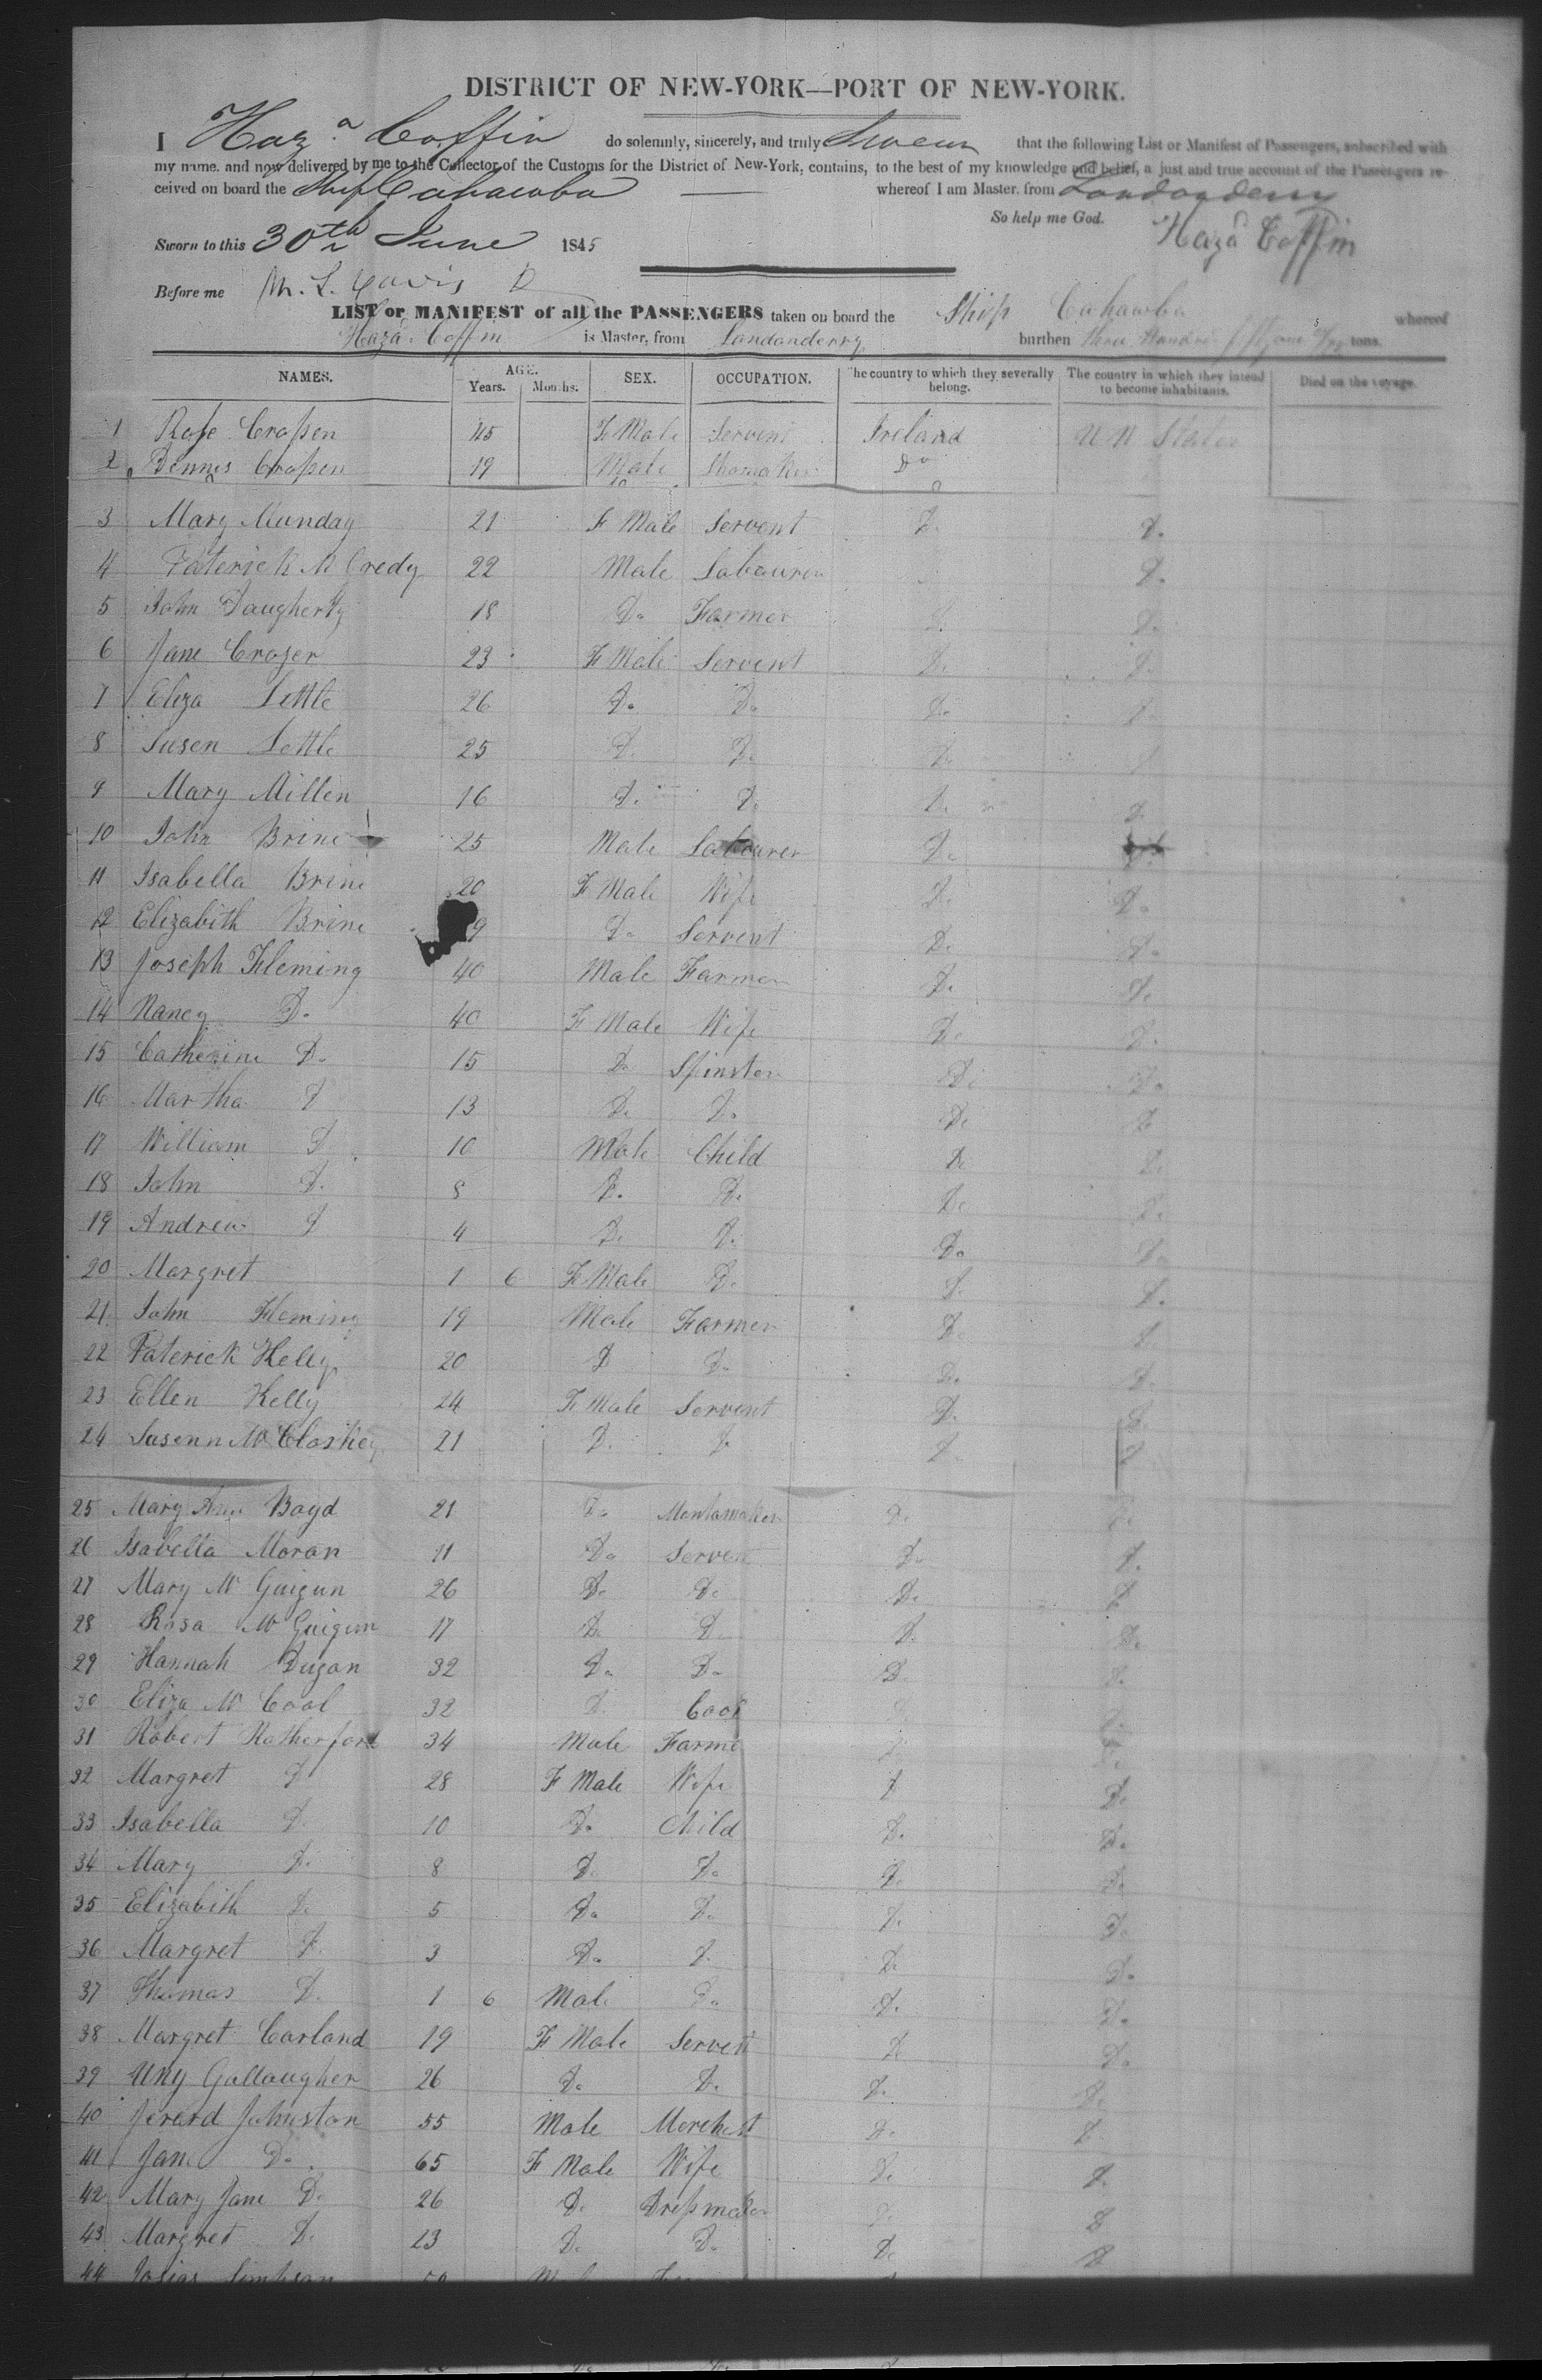 DISTRICT OF NEW-YORK—PORT OF NEW-YORK.
I Haza Coffin do solemnly, sincerely, and truly Swear that the following List or Manifest of Passengers, subscribed with
my name, and now delivered by me to the Collector of the Customs for the District of New-York, contains, to the best of my knowledge and belief, a just and true account of the Passengers re-
ceived on board the Ship Cahawba whereof I am Master, from Londonderry
So help me God.
Haza Coffin
Sworn to this 30th June 1845
Before me
LIST or MANIFEST of all the PASSENGERS taken on board the Ship Cahawba whereof
Haza Coffin is Master, from Londonderry burthen three Hundred fifty one tons.
NAMES. AGE. Years. Months. SEX. OCCUPATION. The country to which they severally belong. The country in which they intend to become inhabitants. Died on the voyage.
1 Rose Crossen 45 F Male Servent Ireland UN States
2 Dennes Crossen 19 Male Shomaker Do
3 Mary Munday 21 F Male Servent D. D.
4 Paterick McCredy 22 Male Labourer D.
5 John Daugherty 18 Do Farmer D. D.
6 Jane Crozer 23 F Male Servent D. D.
7 Eliza Little 26 Do Do Do D.
8 Susen Little 25 D. D. D. D.
9 Mary Millen 16 D. D. D. D.
10 John Brine 25 Male Labourer Do
11 Isabella Brine 20 F Male Wife D. Do
12 Elizabith Brine 9 Do Servent D. D.
13 Joseph Fleming 40 Male Farmer D. D.
14 Nancy Do 40 F Male Wife D. D.
15 Catherine Do 15 Do Spinster D. Do
16 Martha D 13 D. Do D. D
17 William D 10 Male Child D. D.
18 John D. 8 D. D. D. D.
19 Andrew D 4 D. D. Do Do
20 Margret 1 6 F Male D. D. D.
21 John Fleming 19 Male Farmer D. D.
22 Paterick Kelly 20 D Do D. D.
23 Ellen Kelly 24 F Male Servent D. D.
24 Susenn McCloskey 21 D. D. D. D.
25 Mary Ann Boyd 21 Do Mantamaker D. D.
26 Isabella Moran 11 Do Servent Do D.
27 Mary Mc Guigun 26 Do Do D. D
28 Rosa Mc Guigun 17 D. D. D. D.
29 Hannah Dugan 32 Do Do D. D.
30 Eliza Mc Cool 32 D. Cook
31 Robert Rotherford 34 Male Farme D. D.
32 Margret D 28 F Male Wife D D.
33 Isabella D. 10 Do Child D. D.
34 Mary D. 8 D. Do D. D.
35 Elizabith D. 5 Do D. D. D.
36 Margret D. 3 Do D. D. Do
37 Thomas D. 1 6 Male Do D. D.
38 Margret Carland 19 F Male Servent D Do
39 Uny Gallaugher 26 D. D. D. D.
40 Jerard Johnston 55 Male Merchent D. D
41 Jane Do 65 F Male Wife D. D.
42 Mary Jane D. 26 D. Dressmaker D. D
43 Margret D. 23 D. D. D. D
44 Josias Simpson